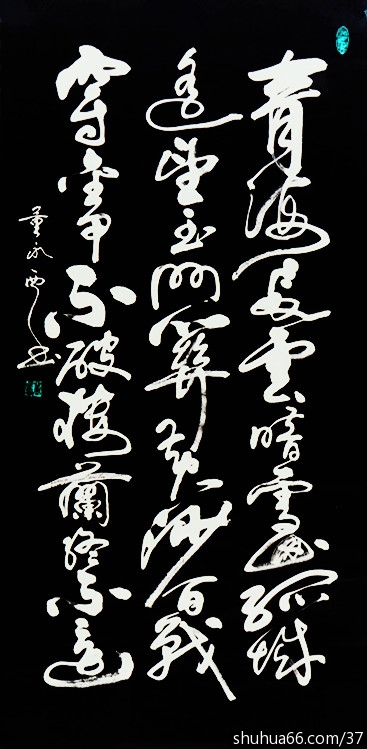 青海長雲暗雪山孤城
遥望玉門關黄沙百戰
穿金甲不破樓蘭終不還
董永西书
shuhua66.com/37